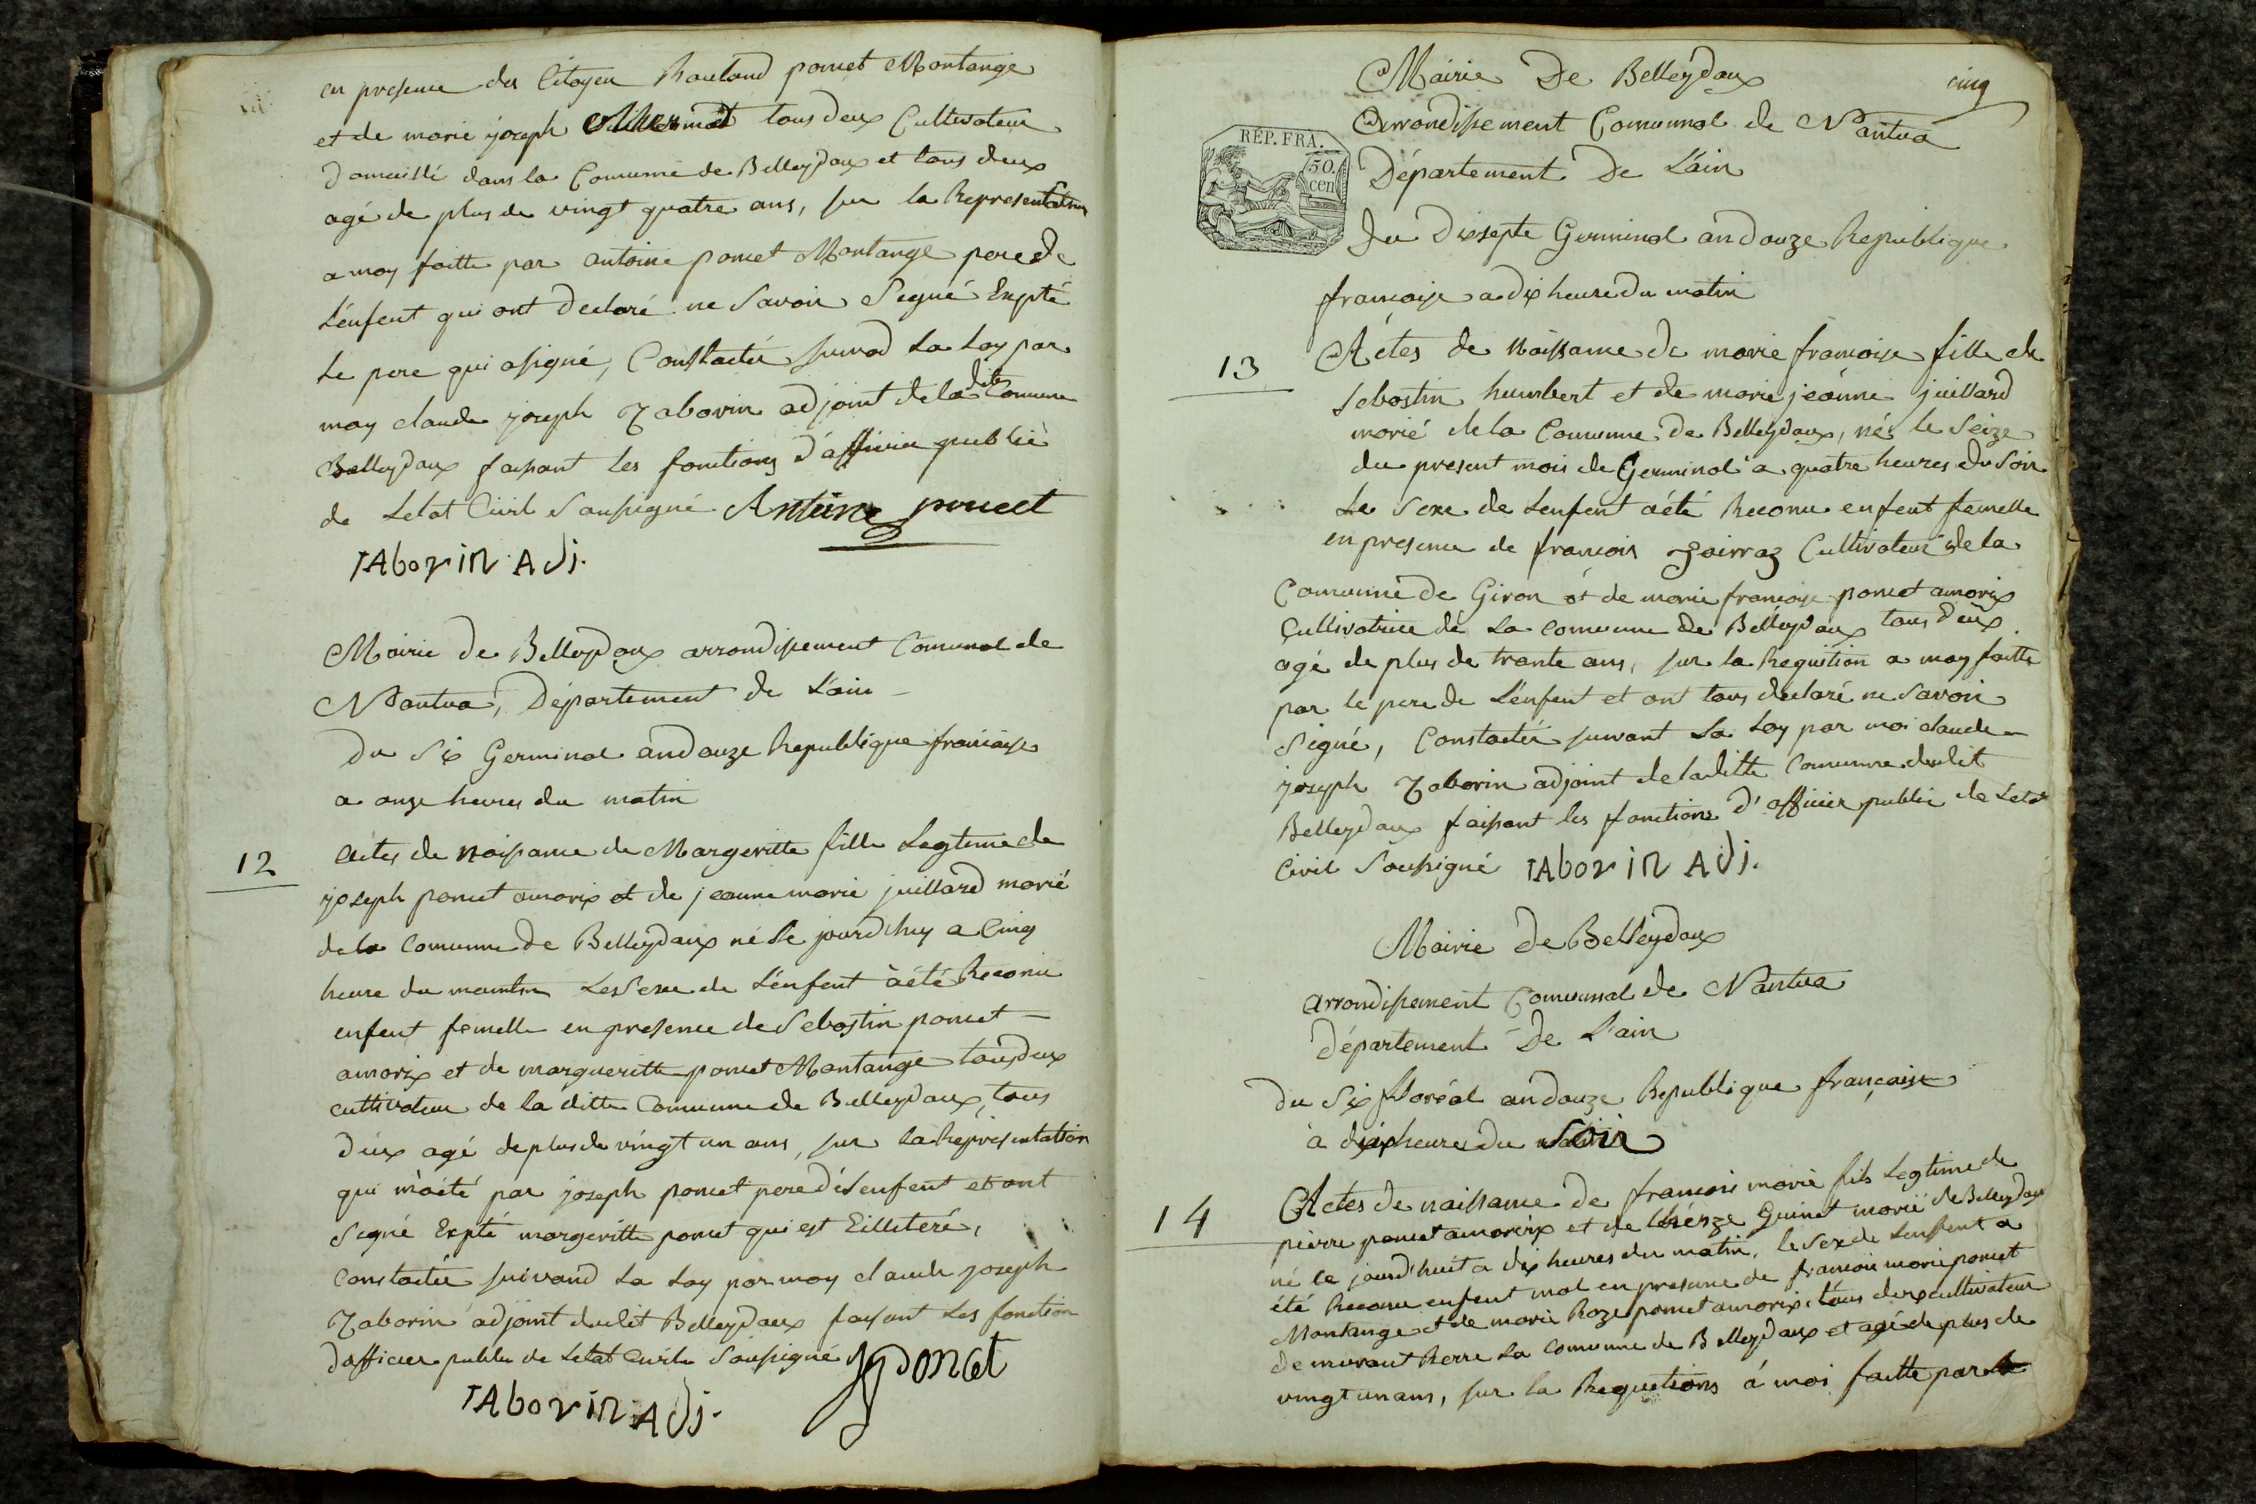 en presence du Citoyen Rouland poncet Montange
et de marie joseph tous deux Cultivateur
domicillé dans la Comune de Belleydoux et tous deux
agé de plus de vingt quatre ans, sur la Representation
a moy faitte par antoine poncet Montange pere de
L'enfent qui ont declaré ne Savoir Segné Expté
Le pere qui a signé, Constactée suivad La Loy par
moy claude joseph Taborin adjoint de la dite Comune
Belleydoux faisant les fonctions d'afficier publié
de Letat Civil Sousigné Antoine poncet
TAborin Adj.
Mairie de Belleydoux arrondisement Comunal de
Nantua, Département de L'ain
du Six Germinal an douze Republique francaise
a onze heures du matin
12
Actes de Naissance de Margeritte fille Legtime de
joseph poncet amorix et de jeanne marie juillard marié
de la Comune de Belleydoux né le jourd'huy a Cinq
heure du Les Sexe de L'enfent a été Reconu
enfent femelle en presence de Sebastin poncet
amorix et de margueritte poncet Montange tous deux
cultivateur de la ditte Comune de Belleydoux, tous
deux agé de plus de vingt un ans, sur la Representation
qui m'a été par joseph poncet pere de L'enfent et ont
Segné Expté margeritte poncet qui est Eilletéré,
Constactée suivand La Loy par moy claude joseph
Taborin adjoint dudit Belleydoux faisant Les fonction
d'afficier public de Letat Civile Sousigné Jh poncet
TAborin Adj.
cinq
Mairie De Belleydoux
Arrondissement Comunnal de Nantua
Département De L'ain
RÉP. FRA.
50.
cen
du Dixsepte Germinal an douze Republique
francaise a dix heure du matin
13
Actes de Naissance de marie francoise fille de
Sebastin humbert et de marie jeanne juillard
marié de la Comune de Belleydoux, nés le Seize
du present mois de Germinal a quatre heures du Soir
Le Sexe de Lenfent a été Reconu enfent femelle
en presence de francois Gairraz Cultivateur de la
Comune de Giron et de marie francoise poncet amorix
Cultivatrice de La comune de Belleydoux tous deux
agé de plus de trante ans, sur la Requition a moy faitte
par le pere de L'enfent et ont tous declaré ne Savoir
Signé, Constactée suivant La Loy par moi claude
joseph Taborin adjoint de laditte Comune dudit
Belleydoux faisant les fonctions d'afficier public de Letat
Civil Sousigné TAborin Adj.
Mairie de Belleydoux
arrondisement Comunnal de Nantua
département De L'ain
du Six floréal an douze Republique française
à dix heure du Soir
14
Actes de naissance de francois marie fils Legtime de
pierre poncet amorix et de thérèze Guinet marié de Belleydoux
né le jourd'huit a dix heures du matin, le Sex de Lenfent a
été Reconu enfent mal en presence de francois marie poncet
Montange et de marie Roze poncet amorix, tous deux cultivateur
demeurant La comune de Belleydoux et agé de plus de
vingt un ans, sur la Requetions à moi faitte par